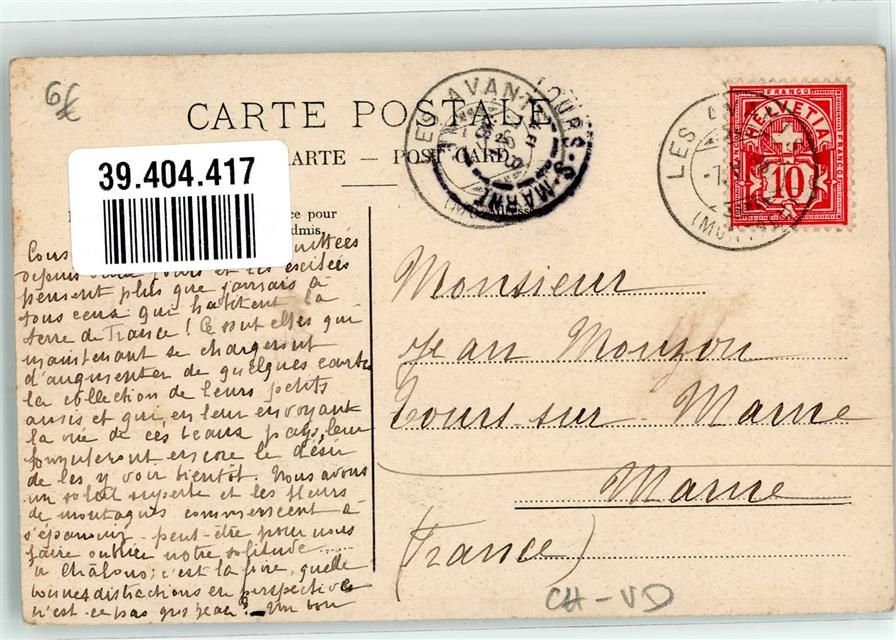 6€
CARTE POSTALE
CARTE — POST CARD
39.404.417
ce pour
Adresse
admis
LES AVANTS
TOURS-S-MARNE
LES AV
(MONTREUX)
FRANCO
HELVETIA
10
Cous quittées
depuis jours et les exilées
pensent plus que jamais à
tous ceux qui habitent la
terre de France! Ce sont elles qui
maintenant se chargeront
d'augmenter de quelques cartes
la collection de leurs petits
amis et qui, en leur envoyant
la vue de ces beaux pays, leur
donneront encore le désir
de les y voir bientôt. Nous avons
un soleil superbe et les fleurs
de montagnes commencent à
s'épanouir peut-être pour nous
faire oublier notre solitude ......
à Châlons; c'est la foire, quelle
bonnes distractions en perspectives
n'est-ce pas gros Jean? - Un bon
Monsieur
Jean Mouzon
Tours-sur-Marne
Marne
(France)
CH-VD